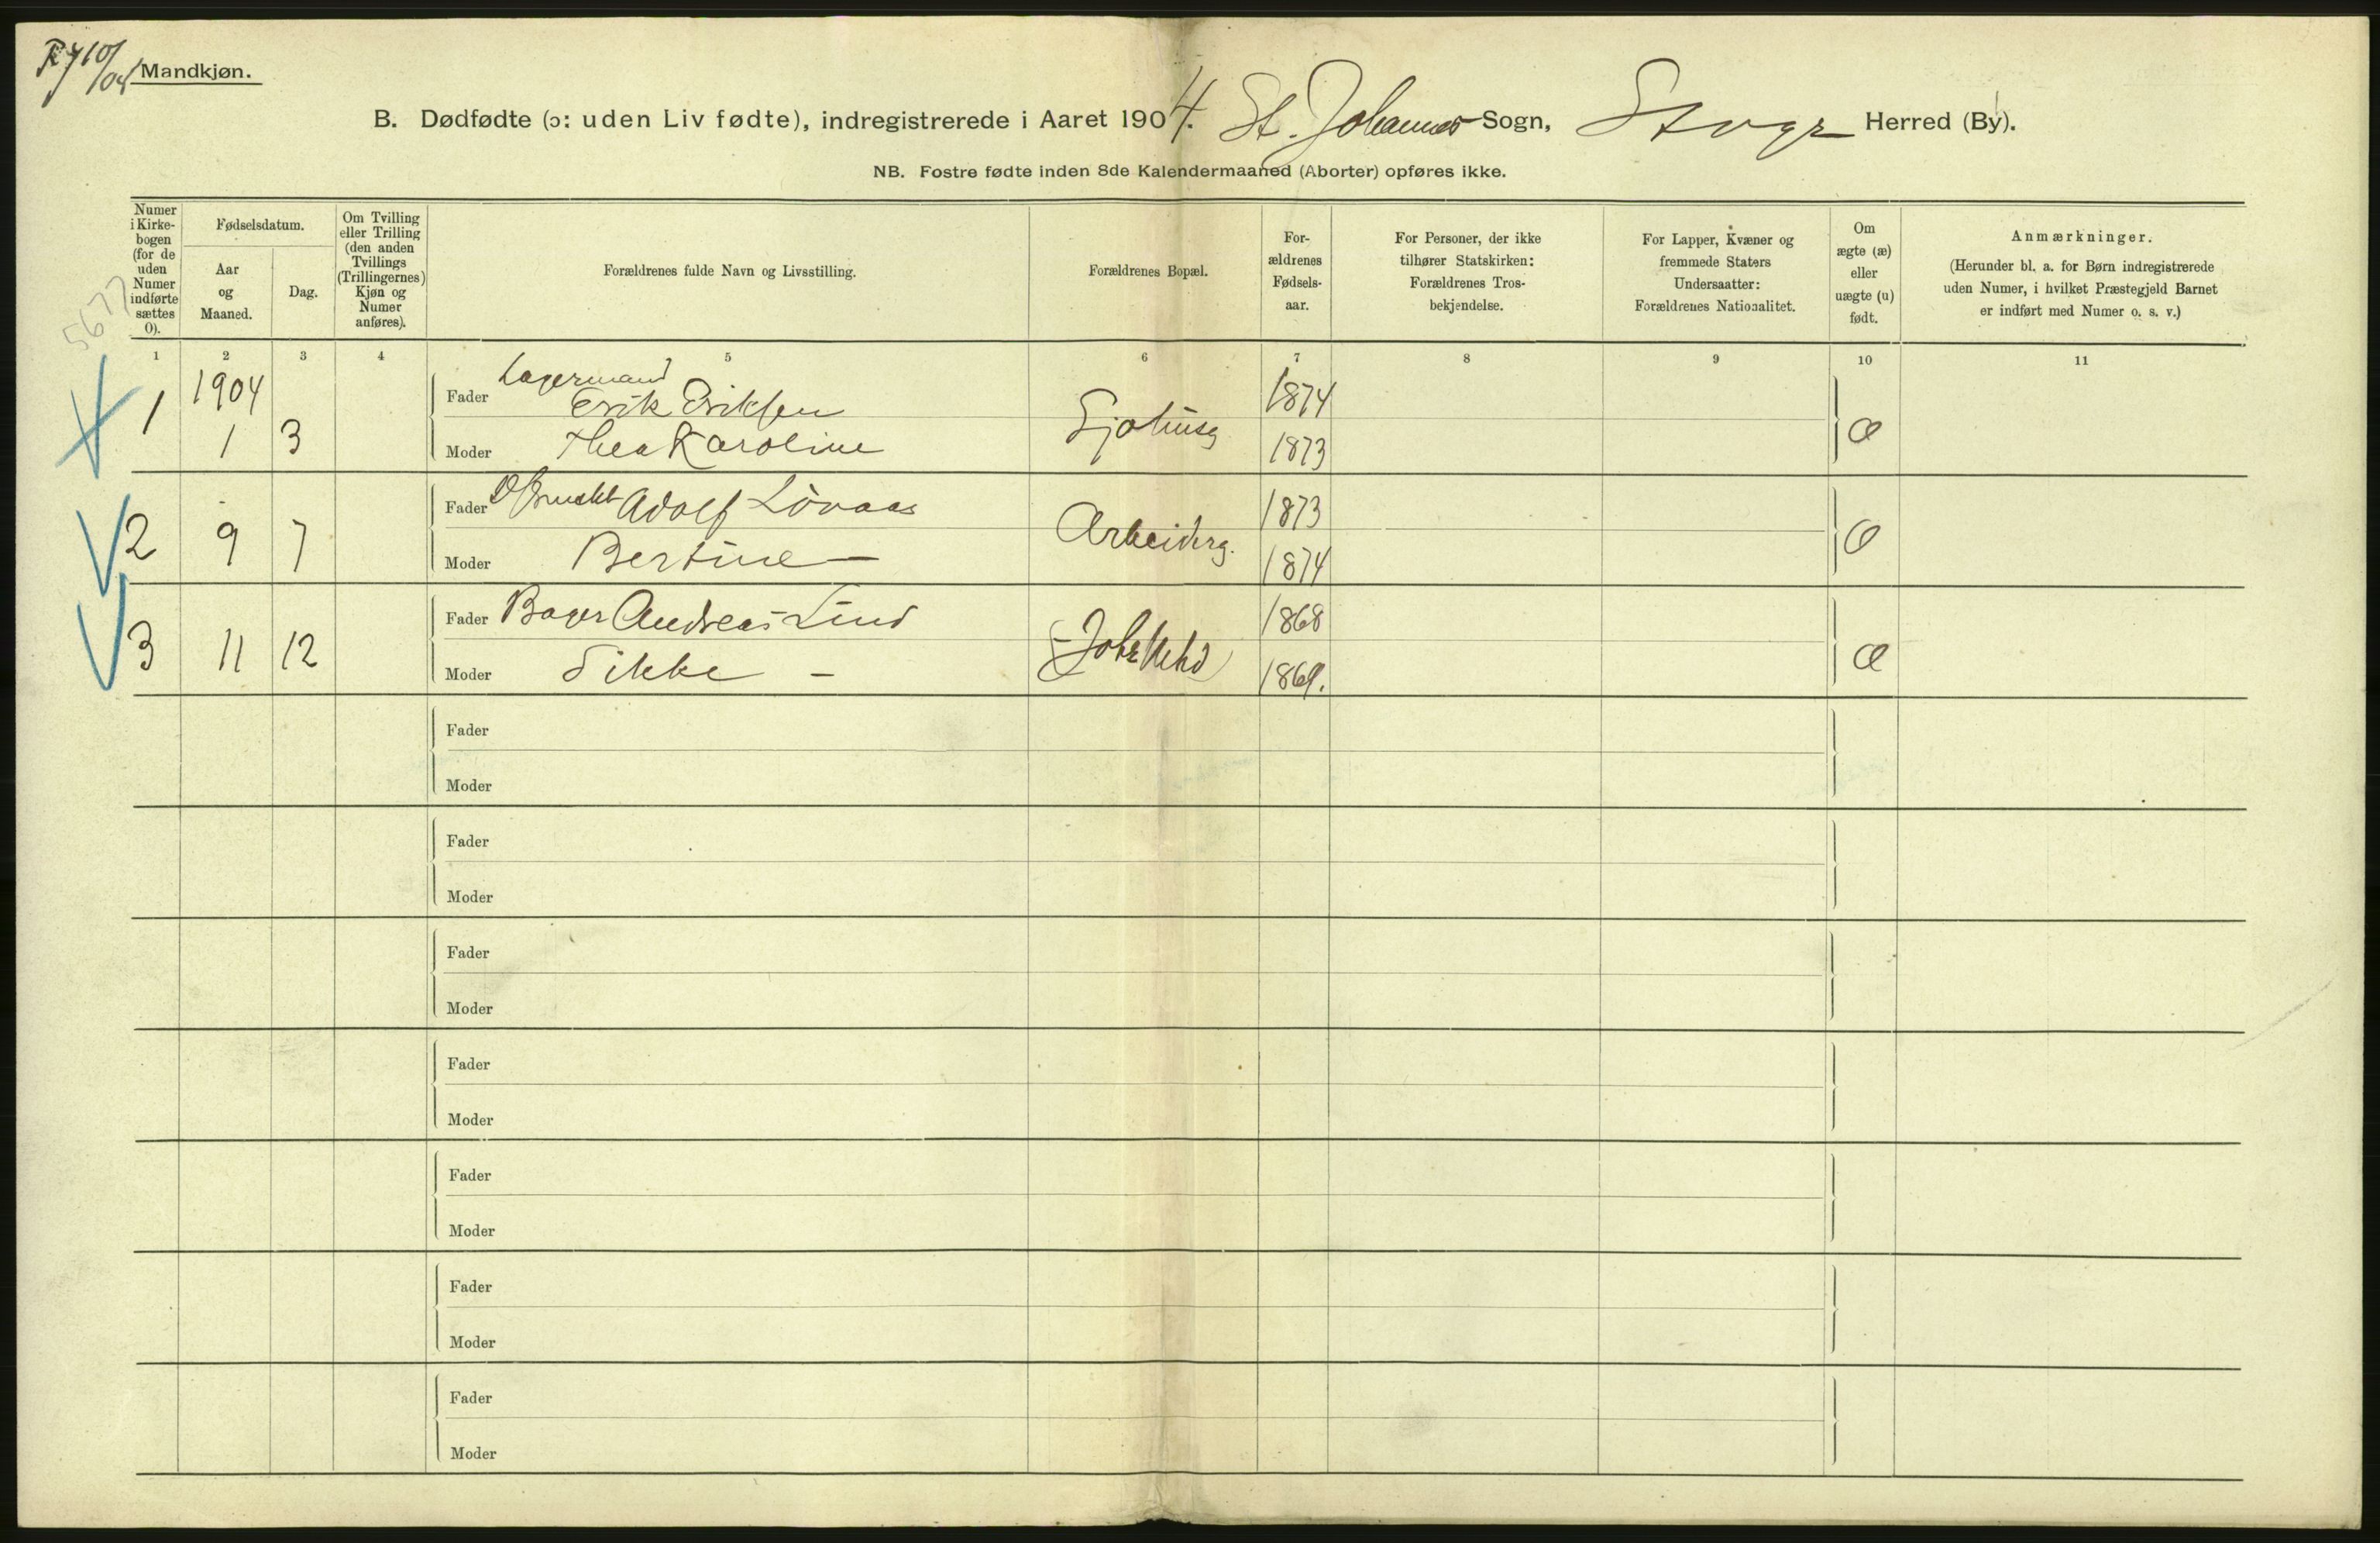 Mandkjøn.
B. Dødfødte (ɔ: uden Liv fødte), indregistrerede i Aaret 1904. St. Johannes Sogn, Stvgr Herred (By).
NB. Fostre fødte inden 8de Kalendermaaned (Aborter) opføres ikke.
Numer
i Kirke-
bogen
(for de
uden
Numer
indførte
sættes
0).
Fødselsdatum.
Aar
og
Maaned.
Dag.
Om Tvilling
eller Trilling
(den anden
Tvillings
(Trillingernes)
Kjøn og
Numer
anføres).
Forældrenes fulde Navn og Livsstilling.
Forældrenes Bopæl.
For-
ældrenes
Fødsels-
aar.
For Personer, der ikke
tilhører Statskirken:
Forældrenes Tros-
bekjendelse.
For Lapper, Kvæner og
fremmede Staters
Undersaatter:
Forældrenes Nationalitet.
Om
ægte (æ)
eller
uægte (u)
født.
Anmærkninger.
(Herunder bl. a. for Børn indregistrerede
uden Numer, i hvilket Præstegjeld Barnet
er indført med Numer o. s. v.)
1 2 3 4 5 6 7 8 9 10 11
5677
1904
Lagermand
Fader Erik Eriksen 1874
1 1 3 Moder Thea Karoline 1873 Æ
Fader Adolf Lövaas 1873
2 9 7 Arbeiderg. Æ
Moder Bertine — 1874
Fader Bager Andreas Lind 1868
3 11 12 Æ
Moder Sikke - 1869.
Fader
Moder
Fader
Moder
Fader
Moder
Fader
Moder
Fader
Moder
Fader
Moder
Fader
Moder